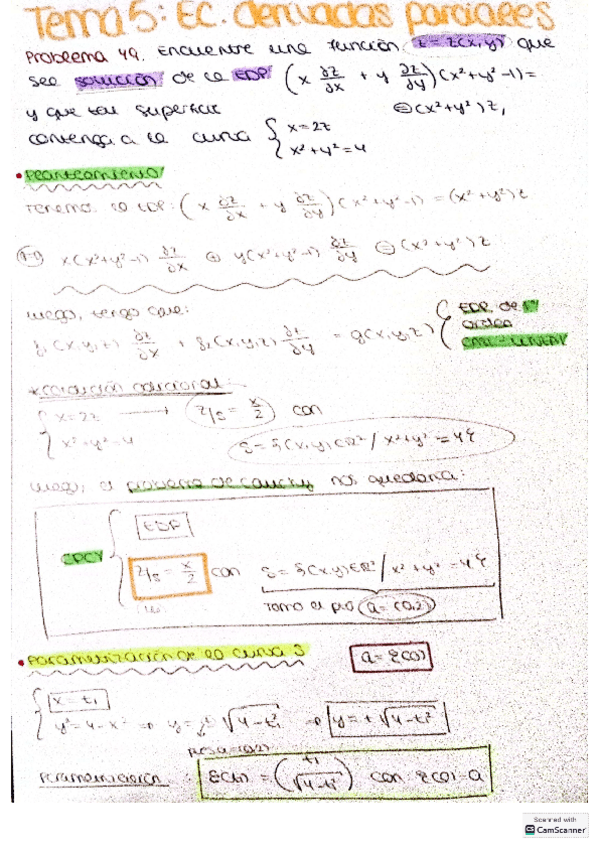 Tema 5: EC. derivadas parciales
Problema 49. Encuentre una función z = z(x,y) que
sea solución de la EDP (x ∂z/∂x + y ∂z/∂y)(x²+y²-1) =
y que su superficie = (x²+y²)z,
contenga a la curva { x=2z
x²+y²=4
• Planteamiento
Tenemos la EDP: (x ∂z/∂x + y ∂z/∂y)(x²+y²-1) = (x²+y²)z
x(x²+y²-1) ∂z/∂x + y(x²+y²-1) ∂z/∂y = (x²+y²)z
luego, tengo que:
f₁(x,y,z) ∂z/∂x + f₂(x,y,z) ∂z/∂y = g(x,y,z) { EDP de 1er
orden
casi-lineal
condición adicional:
{ x=2z → z/s = x/2 con
x²+y²=4 S = {(x,y)∈R² / x²+y² = 4}
luego, el problema de Cauchy nos quedaría:
(PC) { EDP
z/s = x/2 con S = {(x,y)∈R² / x²+y² = 4}
Tomo el pto a = (0,2)
• Parametrización de la curva S a = ξ(0)
{ x = t₁
y² = 4-x² ⇒ y = ± √4-t₁² ⇒ y = + √4-t₁²
pues a=(0,2)
Parametrización: ξ(t₁) = (t₁ √4-t₁²) con ξ(0) = a
Scanned with
CamScanner